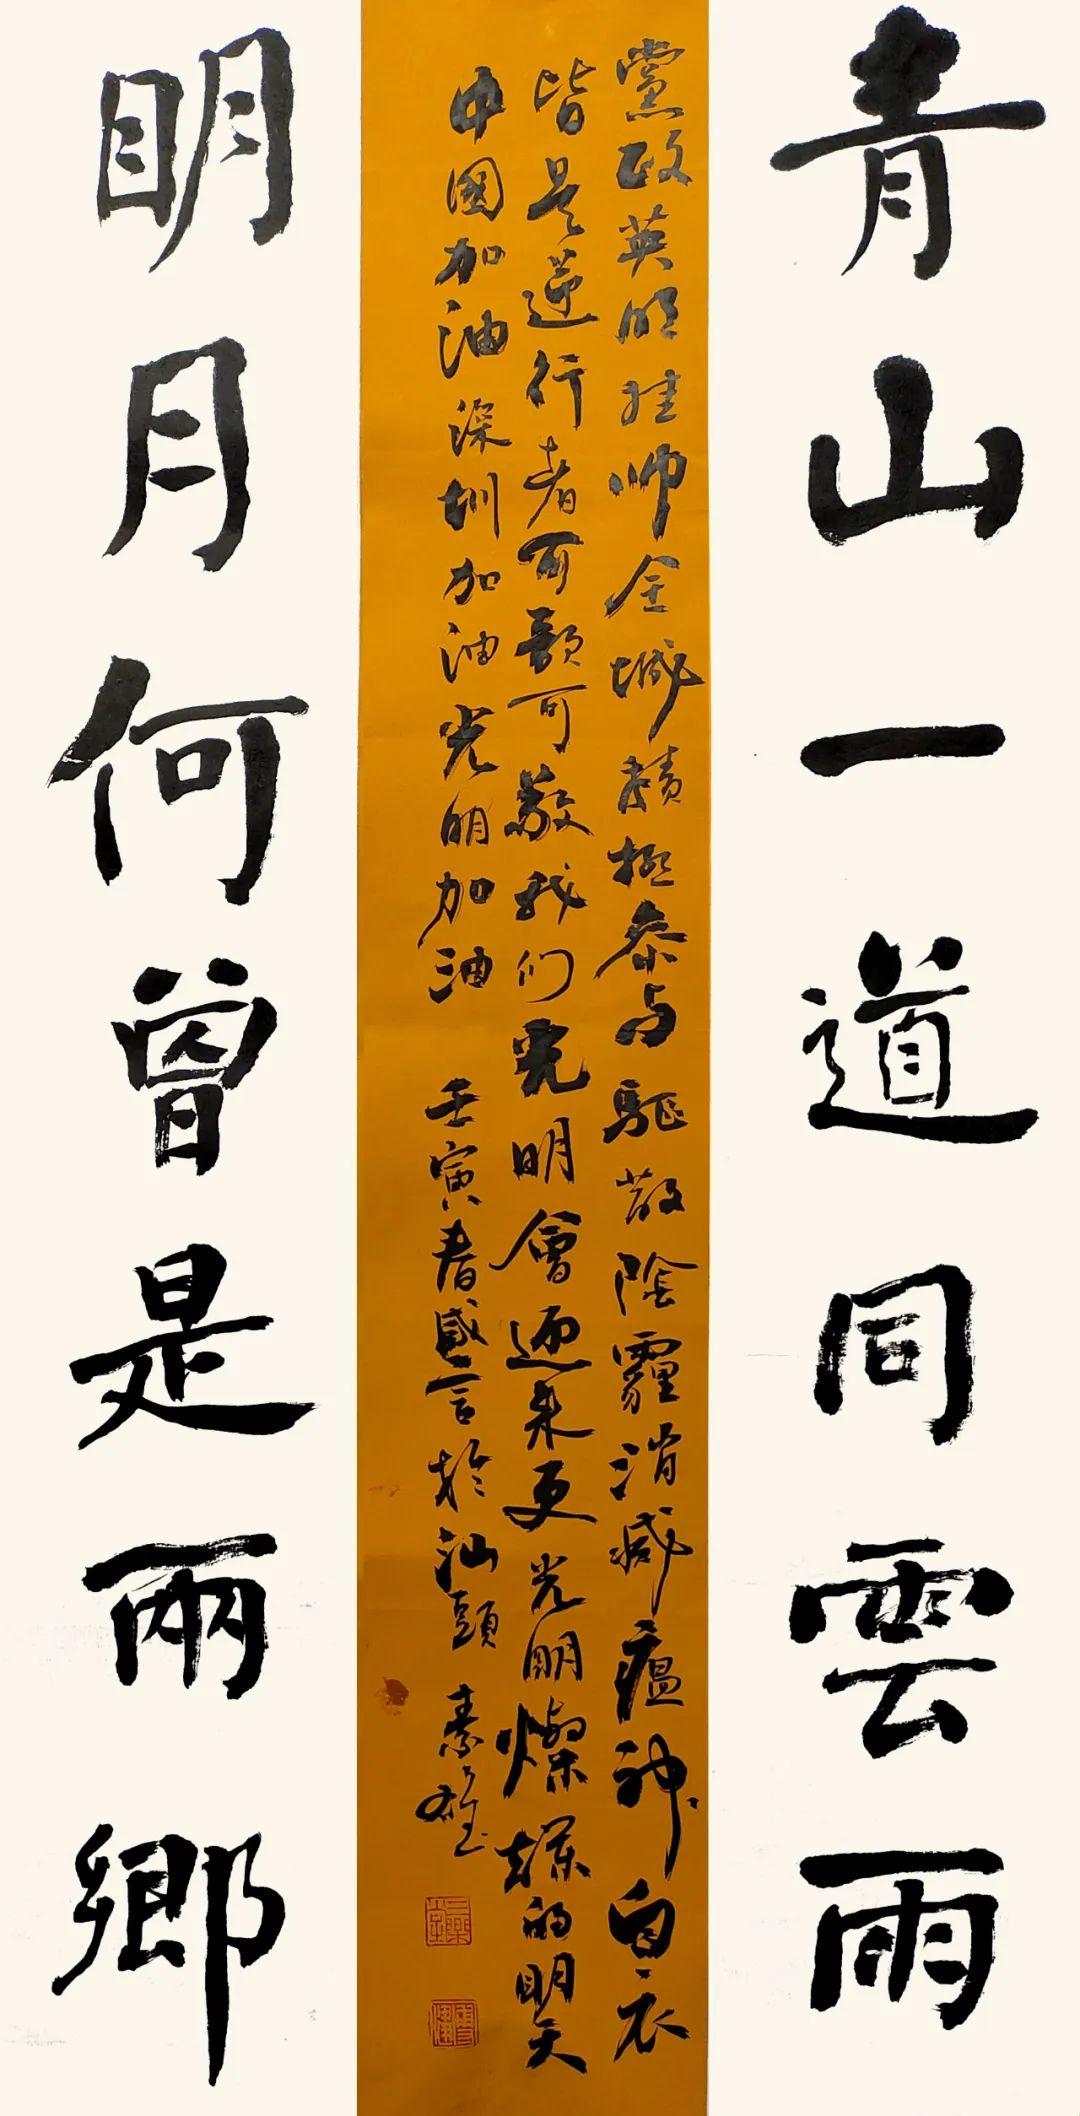 青山一道同雲雨
黨政英明挂帅全城積極參与驱散陰霾消滅瘟神白衣
皆是逆行者可歌可敬我们光明會迎来更光明燦爛的明天
中國加油深圳加油光明加油 壬寅春感言於汕頭 素雄
明月何曾是兩鄉